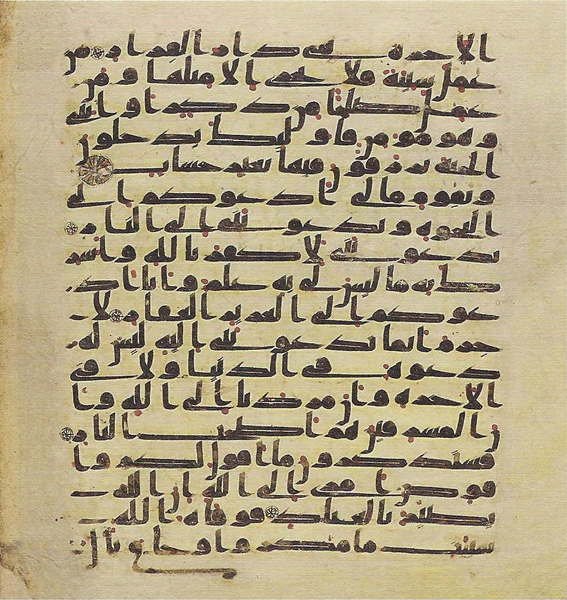 الاخرة هي دار القرار من
عمل سيئة فلا يجزى الا مثلها ومن
عمل صلحا من ذكر او انثى
وهو مومن فاوليك يدخلون
الجنة يرزقون فيها بغير حساب
ويقوم ما لي ادعوكم الى
النجوة وتدعونني الى النار
تدعونني لاكفر بالله واشر
ك به ما ليس لي به علم وانا اد
عوكم الى العزيز الغفر لا
جرم انما تدعونني اليه ليس له
دعوة في الدنيا ولا في
الاخرة وان مردنا الى الله وا
ن المسرفين هم اصحب النار
فستذكرون ما اقول لكم وا
فوض امري الى الله ان الله
بصير بالعباد فوقه الله
سيات ما مكروا وحاق بال